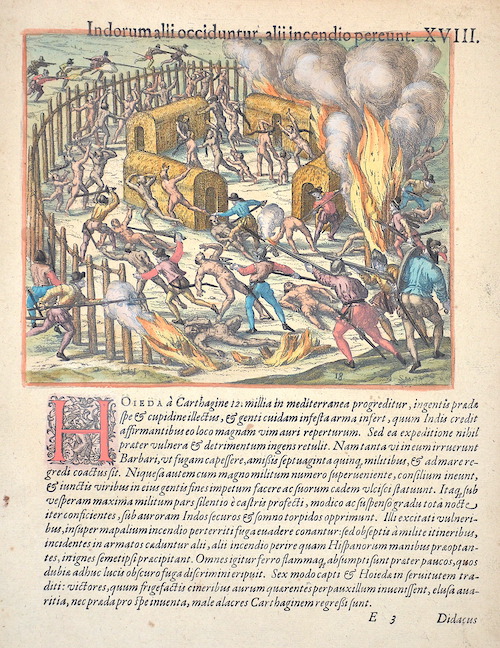 Indorum alii occiduntur, alii incendio pereunt. XVIII.
18
HOIEDA à Carthagine 12. millia in mediterranea progreditur, ingentis prædæ
spe & cupidine illectus, & genti cuidam infesta arma infert, quum Indis credit
affirmantibus eo loco magnam vim auri reperturum. Sed ea expeditione nihil
præter vulnera & detrimentum ingens retulit. Nam tanta vi in eum irruerunt
Barbari, ut fugam capessere, amissis septuaginta quinq, militibus, & ad mare re-
gredi coactus sit. Niquesa autem cum magno militum numero superveniente, consilium ineunt,
& iunctis viribus in eius gentis fines impetum facere ac suorum cædem vlcisci statuunt. Itaq, sub
vesperam maxima militum pars silentio è castris profecti, modico ac suspenso gradu tota nocte
iter conficientes, sub auroram Indos securos & somno torpidos opprimunt. Illi excitati vulneri-
bus, insuper mapalium incendio perterriti fuga euadere conantur: sed obseptis à milite itineribus,
incidentes in armatos cæduntur alii, alii incendio perire quam Hispanorum manibus præoptan-
tes, in ignes semetipsi præcipitant. Omnes igitur ferro flammaq, absumpti sunt præter paucos, quos
dubiæ adhuc lucis obscuro fuga discrimini eripuit. Sex modo capti & Hoiedæ in seruitutem tra-
diti: victores, quum frigefactis cineribus aurum quærentes perpauxillum inuenissent, elusa aua-
ritia, nec præda pro spe inuenta, male alacres Carthaginem regressi sunt.
E 3 Didacus